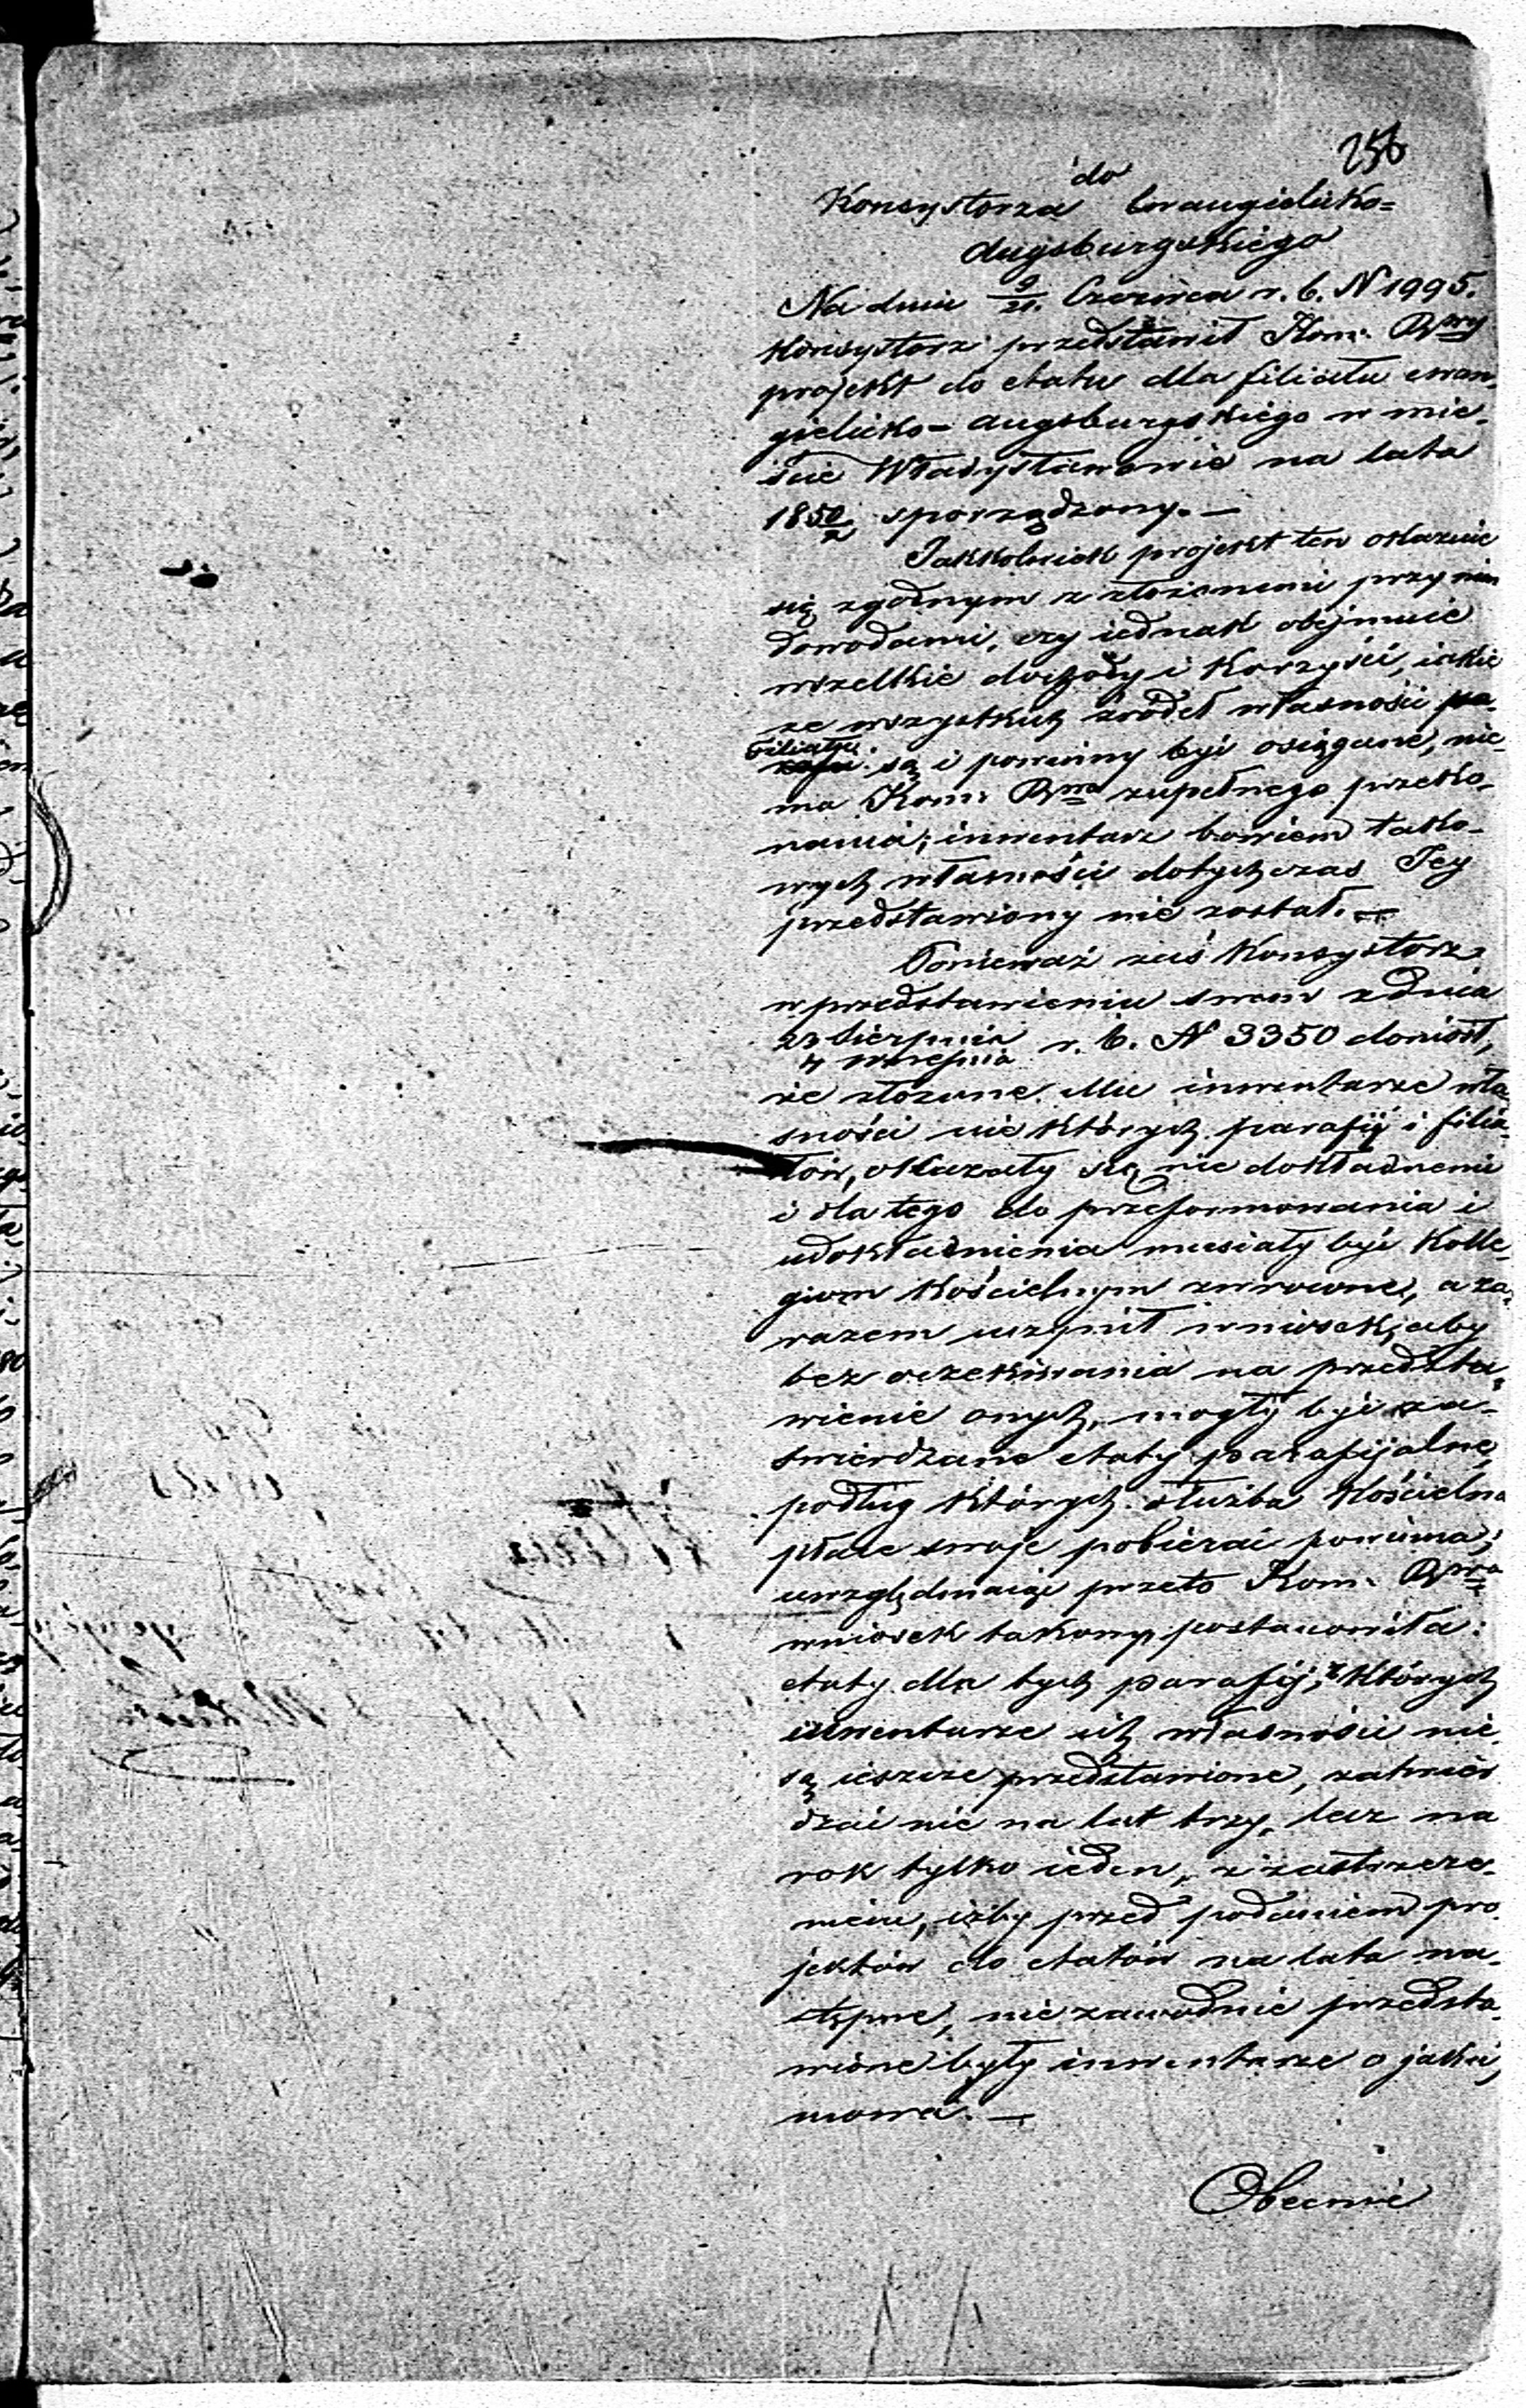 256
do
Konsystorza Ewangielicko=
Augsburgskiego
Na dniu 9/21. Czerwca r. b. N 1995.
Konsystorz przedstawił Kom: Rwey
projekt do etatu dla filiału ewan-
gielicko-augsburgskiego w mie-
ście Władysławowie na lata
1850/2 sporządzony.—
Jakkolwiek projekt ten okazuie
się zgodnym z złożonemi przy nim
dowodami, czy iednak obejmuie
wszelkie dochody i korzyści, iakie
ze wszystkich źródeł własności pa-
filiału są i powinny być osiągane, nie
ma Kom: Rwa zupełnego przeko-
nania; inwentarz bowiem tako-
wych własności dotychczas Jey
przedstawiony nie został.—
Ponieważ zaś Konsystorz
w przedstawieniu swem z dnia
23 Sierpnia / 4 Września r. b. N 3350 doniósł,
że złożone Mu inwentarze wła-
sności nie których parafij i filia-
łów, okazały się nie dokładnemi
i dla tego do przeformowania i
udokładnienia musiały być Kolle-
giom Kościelnym zwrócone, a za-
razem uczynił wniosek, aby
bez oczekiwania na przedsta-
wienie onych, mogły być za-
twierdzane etaty parafijalne,
podług których służba Kościelna
płace swoje pobierać powinna;
uwzględniaiąc przeto Kom: Rwa
wniosek takowy postanowiła:
etaty dla tych parafij, z których
inwentarze ich własności nie
są ieszcze przedstawione, zatwier-
dzać nie na lat trzy, lecz na
rok tylko ieden, z zastrzeże-
niem, iżby przed podaniem pro-
jektów do etatów na lata na-
stępne, nie zawodnie przedsta-
wione były inwentarze o jakich
mowa.—
Obecnie